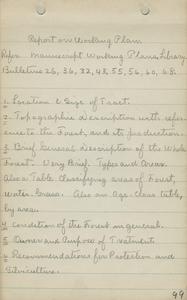 Report on Working Plan
Refer. Manuscript Working Plans, Library.
Bulletins 26, 36, 32, 48, 55, 56, 60, 68.
1. Location & Size of Tract.
2. Topographic Description with refer-
ence to the Forest, and its production.
3. Brief General Description of the Whole
Forest. Very Brief. Types and Areas.
Also a Table Classifying areas of Forest,
Water, Grass. Also an Age-class table,
by areas.
4. Condition of the Forest in general.
5. Owner and Purpose of Treatment.
6. Recommendations for Protection and
Silviculture.
49